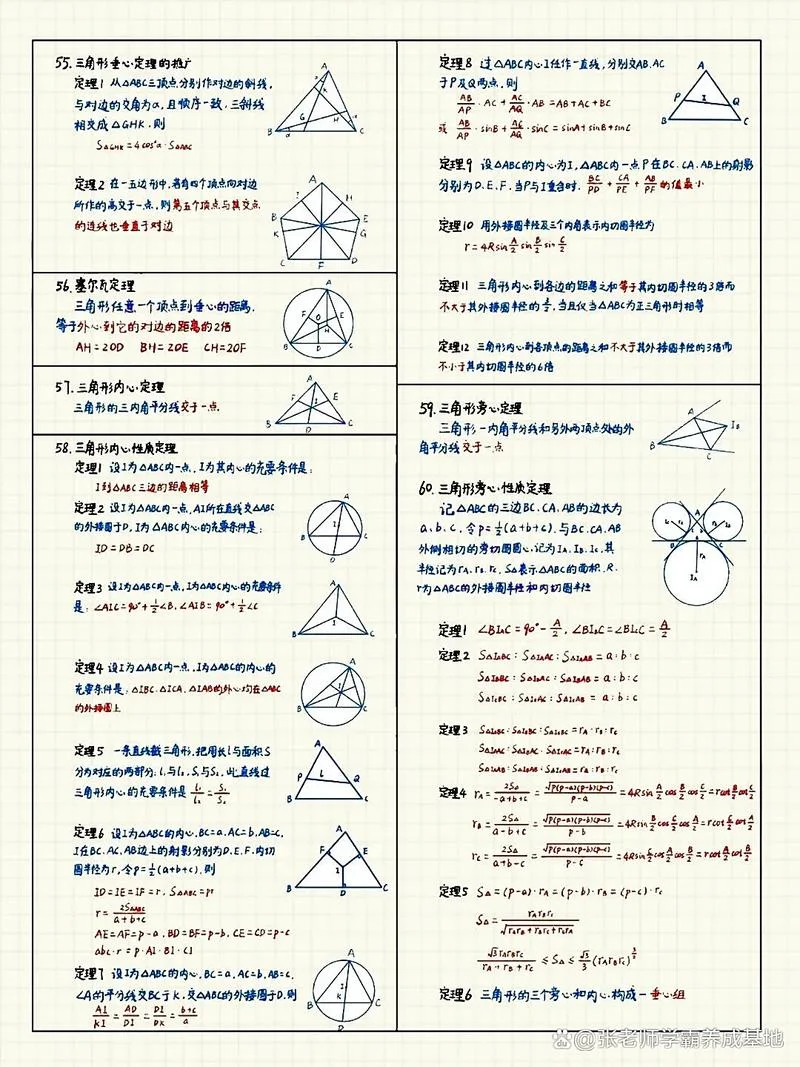 55. 三角形垂心定理的推广
定理1 从△ABC三顶点分别作对边的斜线,
与对边的交角为α, 且顺序一致, 三斜线
相交成△GHK, 则
S△GHK = 4cos²α · S△ABC
定理2 在一五边形中, 若有四个顶点向对边
所作的高交于一点, 则第五个顶点与其交点
的连线也垂直于对边
56. 塞尔瓦定理
三角形任意一个顶点到垂心的距离,
等于外心到它的对边的距离的2倍
AH = 2OD BH = 2OE CH = 2OF
57. 三角形内心定理
三角形的三内角平分线交于一点.
58. 三角形内心性质定理
定理1 设I为△ABC内一点, I为其内心的充要条件是:
I到△ABC三边的距离相等
定理2 设I为△ABC内一点, AI所在直线交△ABC
的外接圆于D, I为△ABC内心的充要条件是:
ID = DB = DC
定理3 设I为△ABC内一点, I为△ABC内心的充要条件
是: ∠AIC=90°+½∠B, ∠AIB=90°+½∠C
定理4 设I为△ABC内一点, I为△ABC的内心的
充要条件是: △IBC, △ICA, △IAB的外心均在△ABC
的外接圆上
定理5 一条直线截三角形, 把周长l与面积S
分为对应的两部分: l₁与l₂, S₁与S₂, 此直线过
三角形内心的充要条件是 l₁/l₂ = S₁/S₂
定理6 设I为△ABC的内心, BC=a, AC=b, AB=c,
I在BC, AC, AB边上的射影分别为D, E, F, 内切
圆半径为r, 令p=½(a+b+c), 则
ID=IE=IF=r, S△ABC=pr
r = 2S△ABC/(a+b+c)
AE=AF=p-a, BD=BF=p-b, CE=CD=p-c
abc·r = p·AI·BI·CI
定理7 设I为△ABC的内心, BC=a, AC=b, AB=c,
∠A的平分线交BC于K, 交△ABC的外接圆于D, 则
AI/KI = AD/DI = DI/DK = (b+c)/a
定理8 过△ABC内心I任作一直线, 分别交AB, AC
于P及Q两点, 则
AB/AP · AC + AC/AQ · AB = AB+AC+BC
或 AB/AP · sinB + AC/AQ · sinC = sinA+sinB+sinC
定理9 设△ABC的内心为I, △ABC内一点P在BC, CA, AB上的射影
分别为D, E, F, 当P与I重合时, BC/PD + CA/PE + AB/PF 的值最小
定理10 用外接圆半径及三个内角表示内切圆半径为
r = 4Rsin A/2 sin B/2 sin C/2
定理11 三角形内心到各边的距离之和等于其内切圆半径的3倍而
不大于其外接圆半径的3/2, 当且仅当△ABC为正三角形时相等
定理12 三角形内心到各顶点的距离之和不大于其外接圆半径的3倍而
不小于其内切圆半径的6倍
59. 三角形旁心定理
三角形一内角平分线和另外两顶点处的外
角平分线交于一点
60. 三角形旁心性质定理
记△ABC的三边BC, CA, AB的边长为
a, b, c, 令p=½(a+b+c), 与BC, CA, AB
外侧相切的旁切圆圆心记为IA, IB, IC, 其
半径记为rA, rB, rC, S△表示△ABC的面积, R,
r为△ABC的外接圆半径和内切圆半径
定理1 ∠BIAC = 90° - A/2, ∠BIBC = ∠BICC = A/2
定理2 S△IABC : S△IAAC : S△IAAB = a:b:c
S△IBBC : S△IBAC : S△IBAB = a:b:c
S△ICBC : S△ICAC : S△ICAB = a:b:c
定理3 S△IABC : S△IBBC : S△ICBC = rA : rB : rC
S△IAAC : S△IBAC : S△ICAC = rA : rB : rC
S△IAAB : S△IBAB : S△ICAB = rA : rB : rC
定理4 rA = 2S△/(-a+b+c) = √(p(p-a)(p-b)(p-c))/(p-a) = 4Rsin A/2 cos B/2 cos C/2 = rcot B/2 cot C/2
rB = 2S△/(a-b+c) = √(p(p-a)(p-b)(p-c))/(p-b) = 4Rsin B/2 cos C/2 cos A/2 = rcot C/2 cot A/2
rC = 2S△/(a+b-c) = √(p(p-a)(p-b)(p-c))/(p-c) = 4Rsin C/2 cos A/2 cos B/2 = rcot A/2 cot B/2
定理5 S△ = (p-a)·rA = (p-b)·rB = (p-c)·rC
S△ = rArBrC/√(rArB+rBrC+rCrA)
√3rArBrC/(rA+rB+rC) ≤ S△ ≤ √3/3 (rArBrC)^(2/3)
定理6 三角形的三个旁心和内心, 构成一垂心组
@张老师学霸养成基地